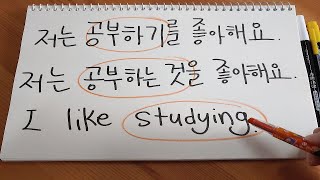 저는 공부하기를 좋아해요.
저는 공부하는 것을 좋아해요.
I like studying.